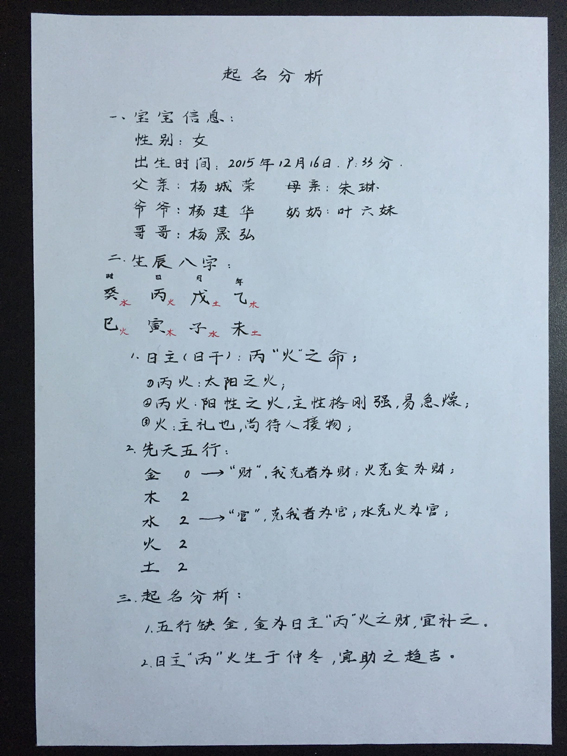 起名分析
一、宝宝信息：
性别：女
出生时间：2015年12月16日.9:33分.
父亲：杨城荣 母亲：朱琳
爷爷：杨建华 奶奶：叶六妹
哥哥：杨晟弘
二.生辰八字：
时 日 月 年
癸水 丙火 戊土 乙木
巳火 寅木 子水 未土
1.日主(日干)：丙“火”之命；
①丙火：太阳之火；
②丙火.阳性之火,主性格刚强,易急燥；
③火：主礼也,尚待人接物；
2.先天五行：
金 0 →“财”,我克者为财：火克金为财；
木 2
水 2 →“官”,克我者为官；水克火为官；
火 2
土 2
三.起名分析：
1.五行缺金,金为日主“丙”火之财,宜补之。
2.日主“丙”火生于仲冬,宜助之趋吉。